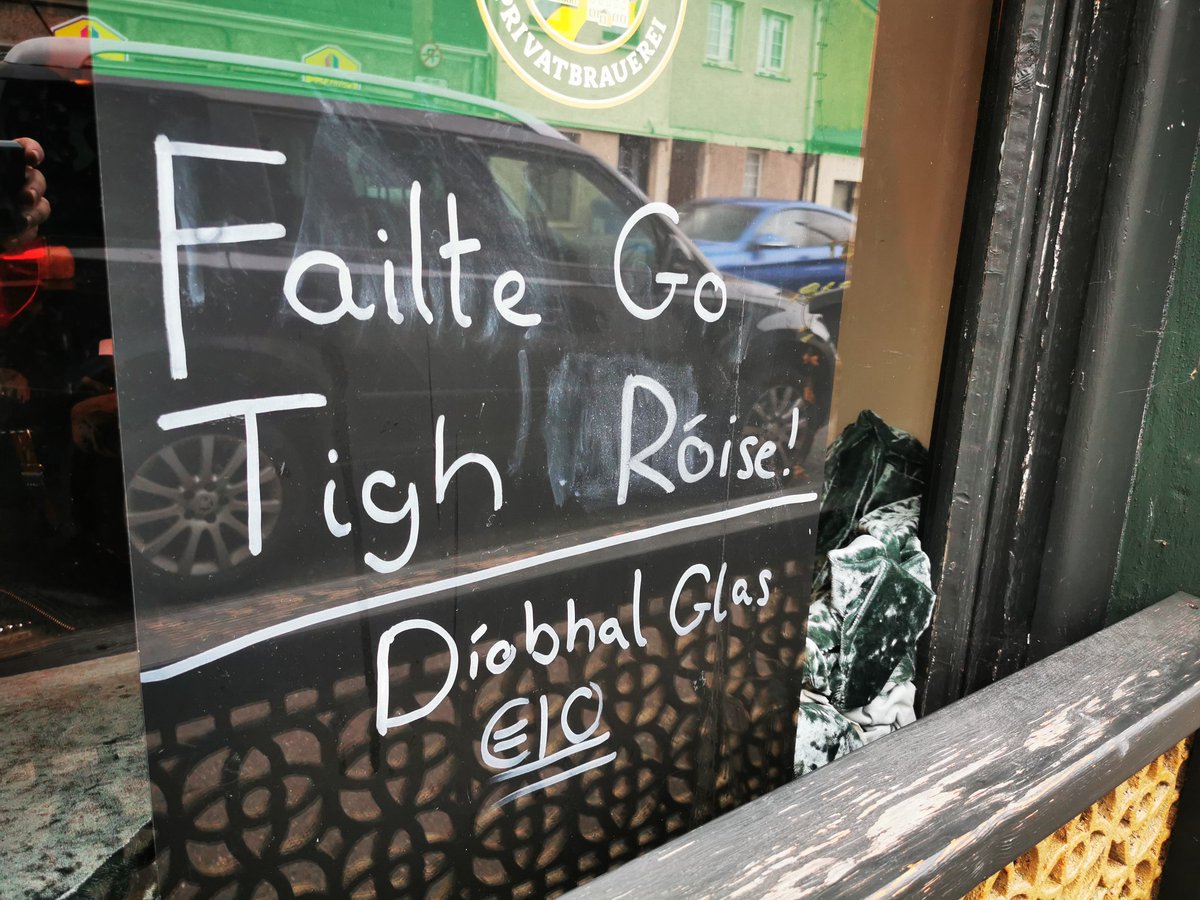 PRIVATBRAUEREI
Failte Go
Tigh Róise!
Díobhal Glas
€10